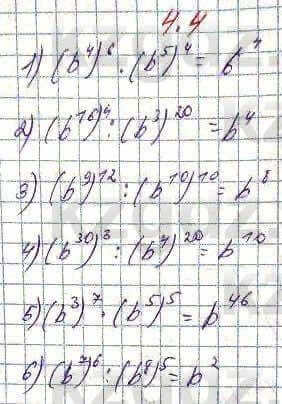 4.4
1) (b⁴)⁶ · (b⁵)⁴ = b⁴
2) (b¹⁶)⁴ : (b³)²⁰ = b⁴
3) (b⁹)¹² : (b¹⁰)¹⁰ = b⁸
4) (b³⁰)³ : (b⁴)²⁰ = b¹⁰
5) (b³)⁷ · (b⁵)⁵ = b⁴⁶
6) (b⁷)⁶ : (b⁸)⁵ = b²